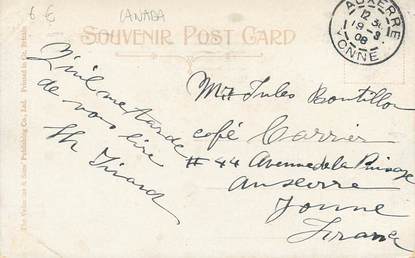 6 €
CANADA
SOUVENIR POST CARD
AUXERRE
12
9
09
YONNE
The Valentine & Sons' Publishing Co., Ltd. Printed in Gt. Britain
Qu'il me tarde
de vous lire
Th Girard
Jules Bontillon
café Carrier
# 44 Avenue de la
Auxerre
Yonne
France